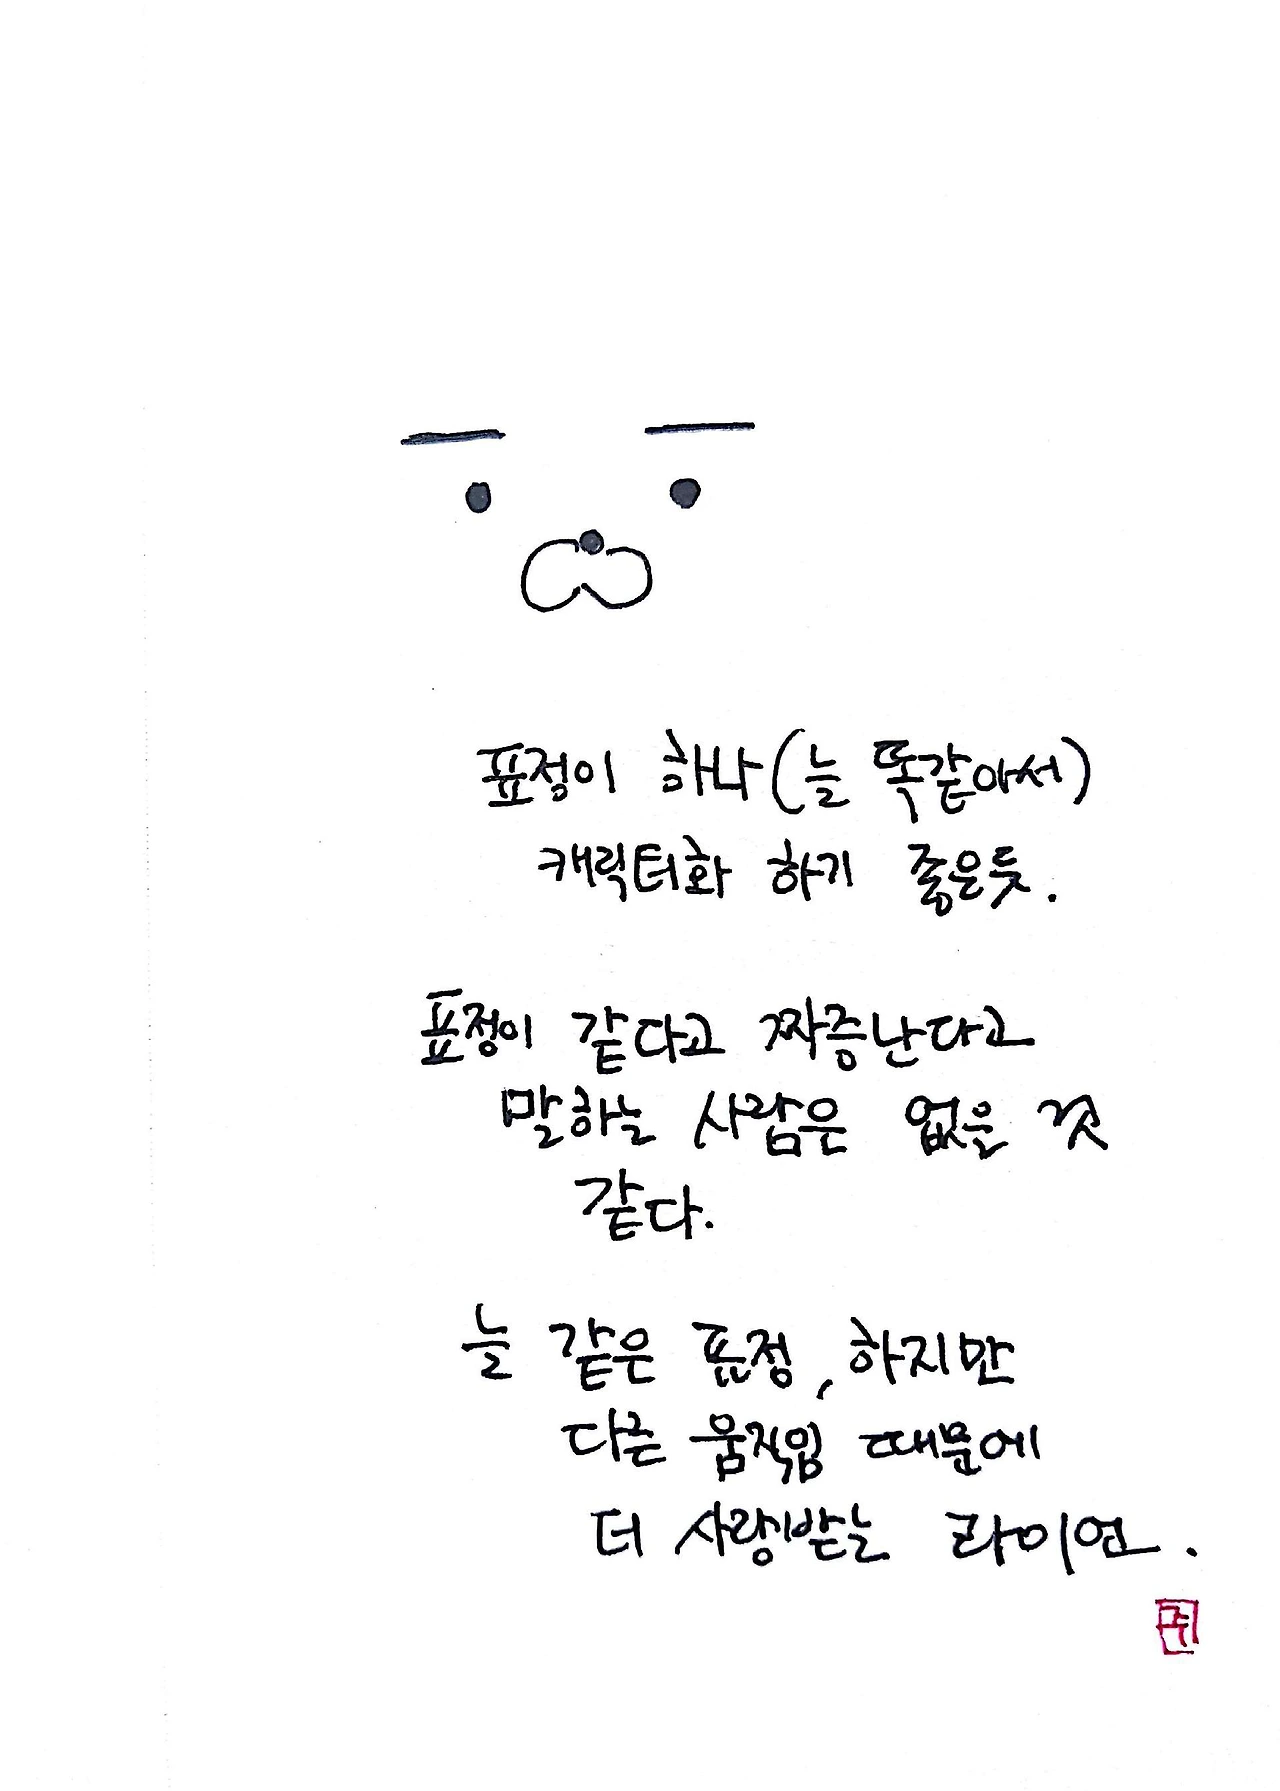 표정이 하나(늘 똑같아서)
캐릭터화 하기 좋은듯.
표정이 같다고 짜증난다고
말하는 사람은 없을 것
같다.
늘 같은 표정, 하지만
다른 움직임 때문에
더 사랑받는 라이언.